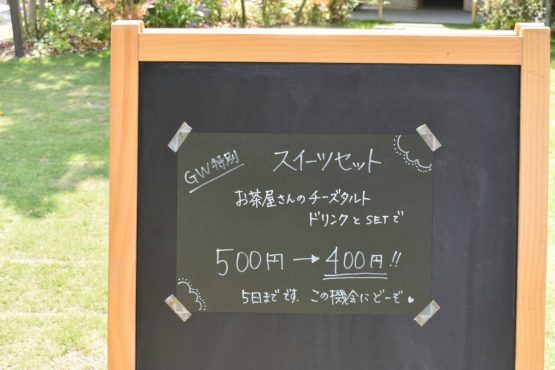 GW特別
スイーツセット
お茶屋さんのチーズタルト
ドリンクとSETで
500円→400円!!
5日までです。この機会にどーぞ♥